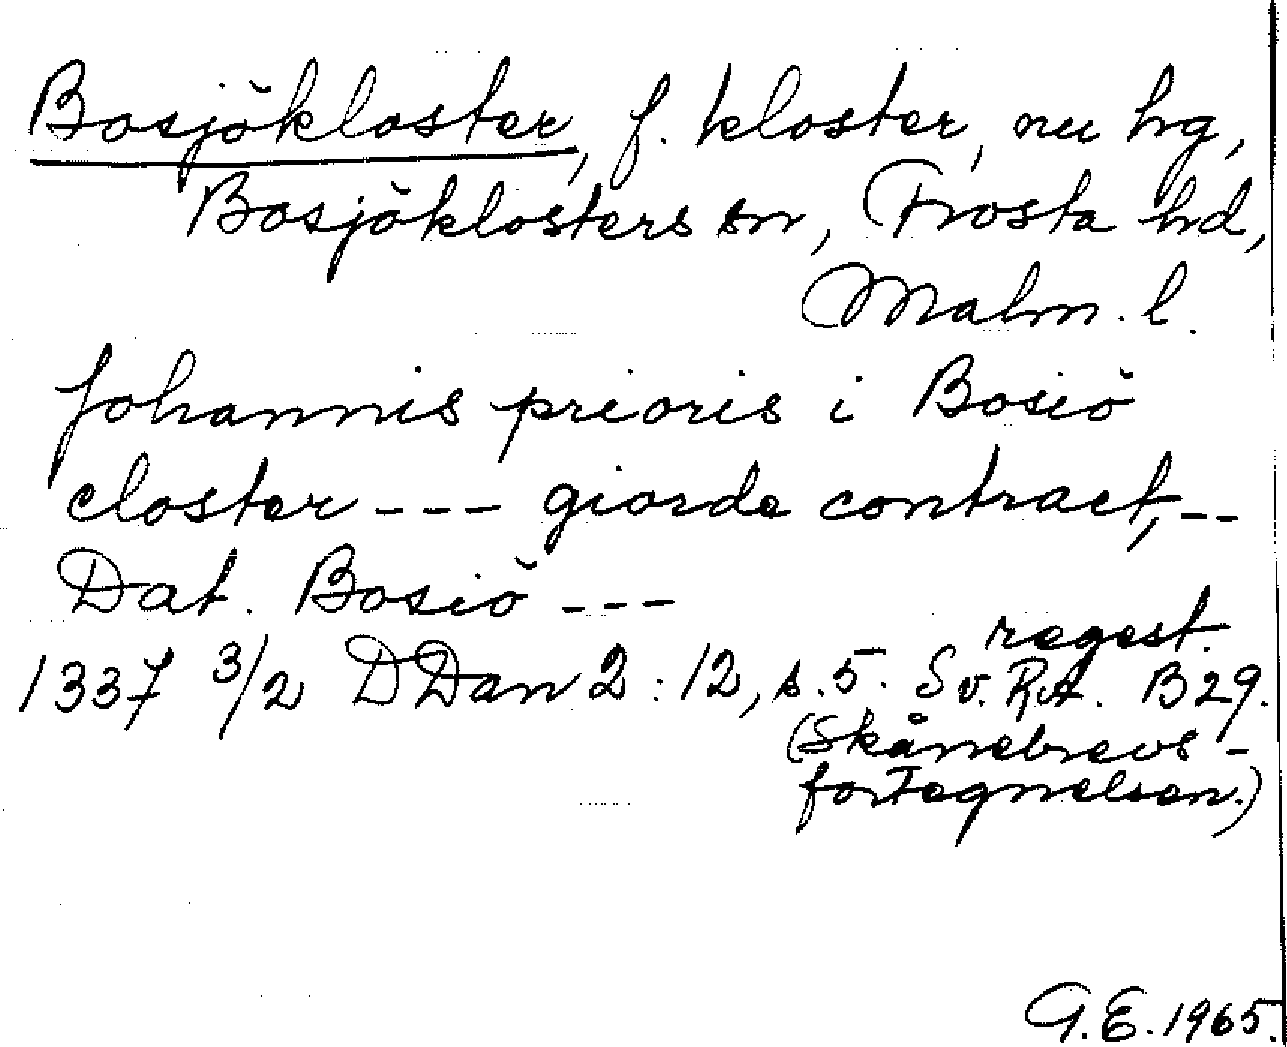 Bosjökloster, f. kloster, nu hg,
Bosjöklosters sn, Frosta hd,
Malm. l.
Johannis prioris i Bosiö
closter --- giorde contract, --
Dat. Bosiö ---
regest.
1337 3/2 DDan 2:12, s.5. Sv. RA. B29.
(Skånebrevs-
fortegnelsen.)
G.E. 1965.